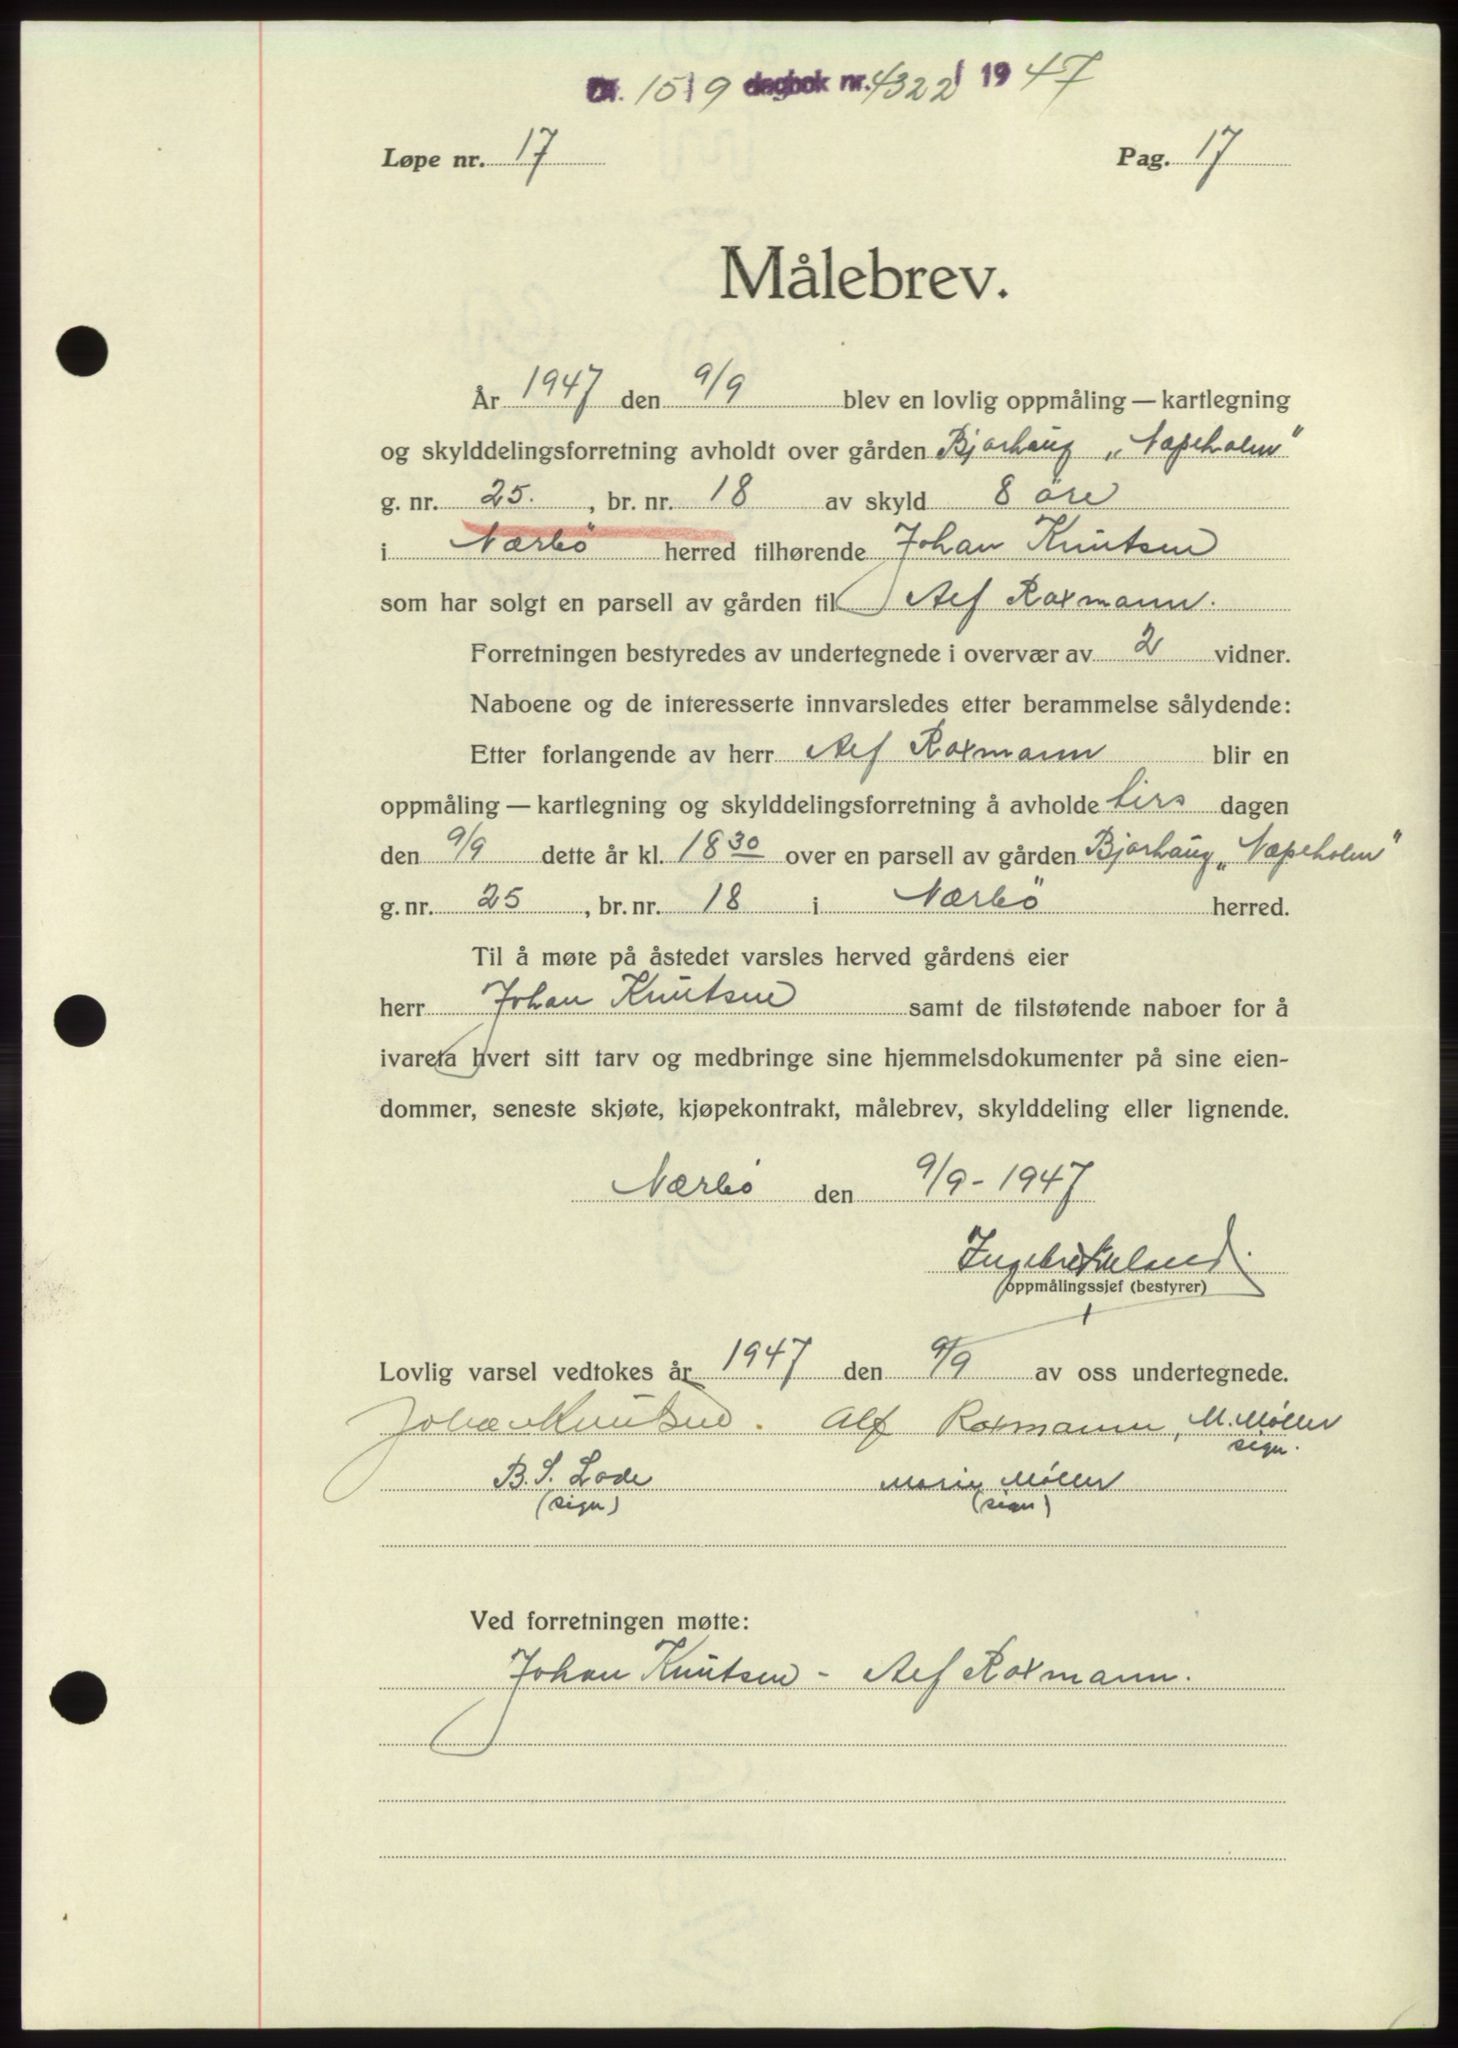 Dr. 15/9 dagbok nr. 4322 / 1947
Løpe nr. 17 Pag. 17
Målebrev.
År 1947 den 9/9 blev en lovlig oppmåling — kartlegning
og skylddelingsforretning avholdt over gården Bjorhaug „Næpeholm"
g. nr. 25. , br. nr. 18 av skyld 8 öre
i Nærbö herred tilhørende Johan Knutsen
som har solgt en parsell av gården til Alf Roxmann.
Forretningen bestyredes av undertegnede i overvær av 2 vidner.
Naboene og de interesserte innvarsledes etter berammelse sålydende:
Etter forlangende av herr Alf Roxmann blir en
oppmåling — kartlegning og skylddelingsforretning å avholde tirs dagen
den 9/9 dette år kl. 18 30 over en parsell av gården Bjorhaug „Næpeholm"
g. nr. 25 , br. nr. 18 i Nærbö herred.
Til å møte på åstedet varsles herved gårdens eier
herr Johan Knutsen samt de tilstøtende naboer for å
ivareta hvert sitt tarv og medbringe sine hjemmelsdokumenter på sine eien-
dommer, seneste skjøte, kjøpekontrakt, målebrev, skylddeling eller lignende.
Nærbö den 9/9 - 1947
oppmålingssjef (bestyrer)
Lovlig varsel vedtokes år 1947 den 9/9 av oss undertegnede.
Johan Knutsen. Alf Roxmann, M. Møller
sign.
B. S. Lode Marie Møller
(sign) (sign)
Ved forretningen møtte:
Johan Knutsen - Alf Roxmann.